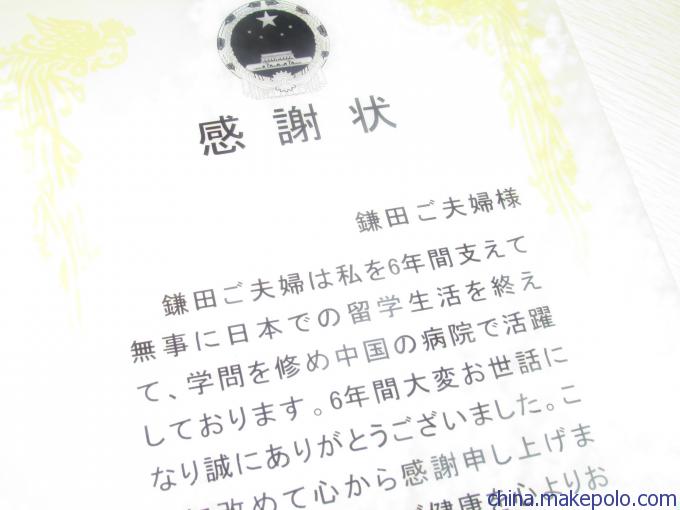 感謝状
鎌田ご夫婦様
鎌田ご夫婦は私を6年間支えて
無事に日本での留学生活を終え
て、学問を修め中国の病院で活躍
しております。6年間大変お世話に
なり誠にありがとうございました。こ
に改めて心から感謝申し上げま
健康を心よりお
china.makepolo.com